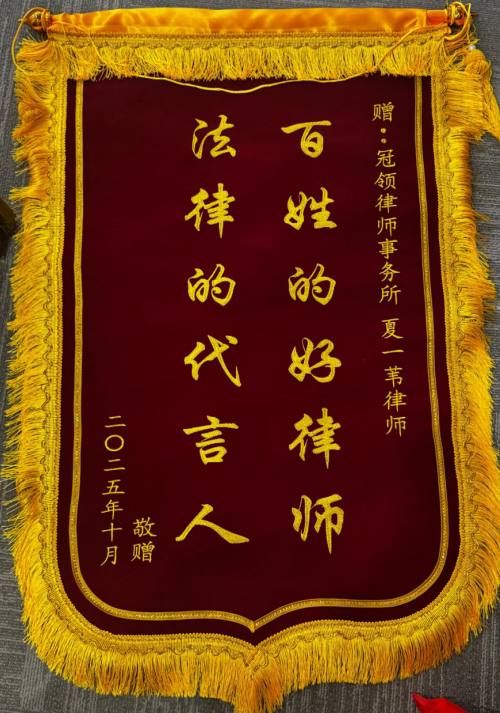 赠：冠领律师事务所 夏一苇律师
百姓的好律师
法律的代言人
敬赠
二〇二五年十月